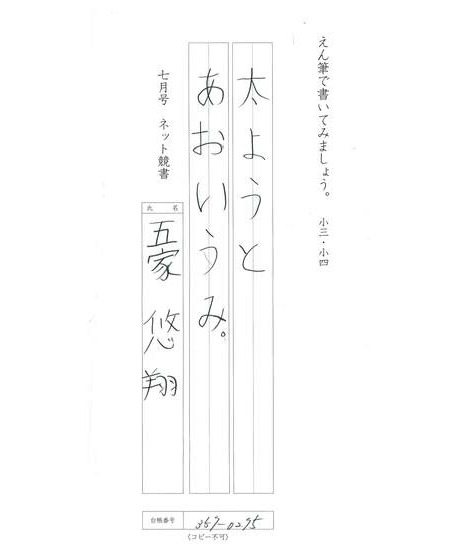 えん筆で書いてみましょう。 小三・小四
太ようと
あおいうみ。
七月号 ネット競書
氏名
五家 悠翔
台帳番号
359-0295
(コピー不可)